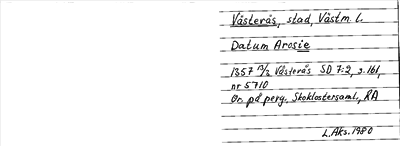 Västerås, stad, Västm. l.
Datum Arosie
1357 13/2 Västerås SD 7:2, s. 161,
nr 5710
Or. på perg., Skoklostersaml., RA
L. Aks. 1980